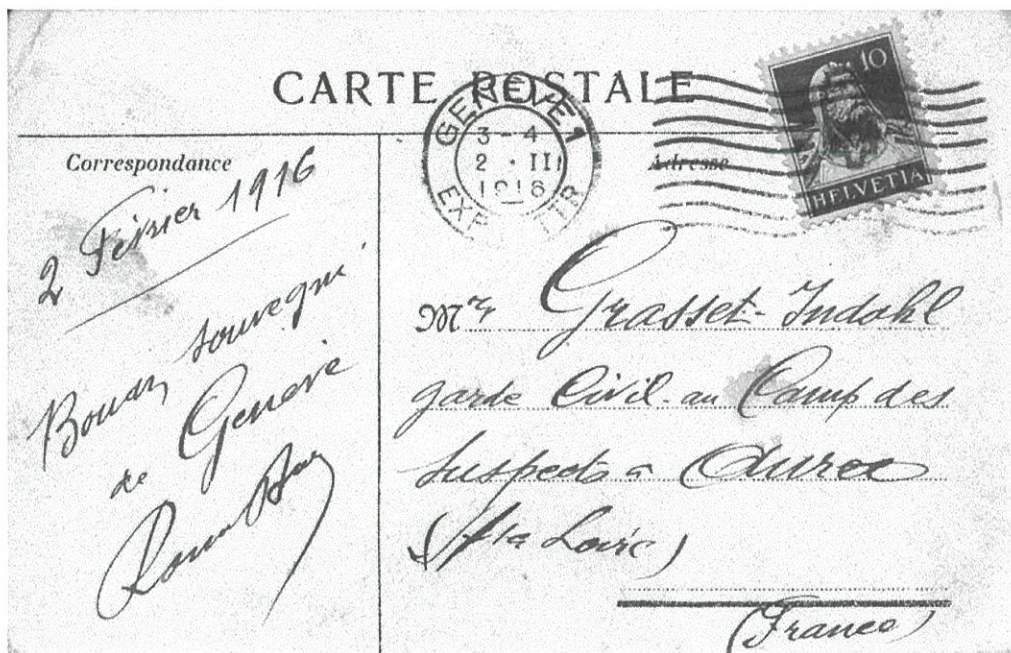 CARTE POSTALE
GENÈVE 1
3 - 4
2 · III
1916
EXP. LTTR
10
HELVETIA
Correspondance
Adresse
2 Février 1916
de Genève
Mr Grasset-Indahl
garde Civil au Camp des
suspects à Aurec
(Hte Loire)
(France)